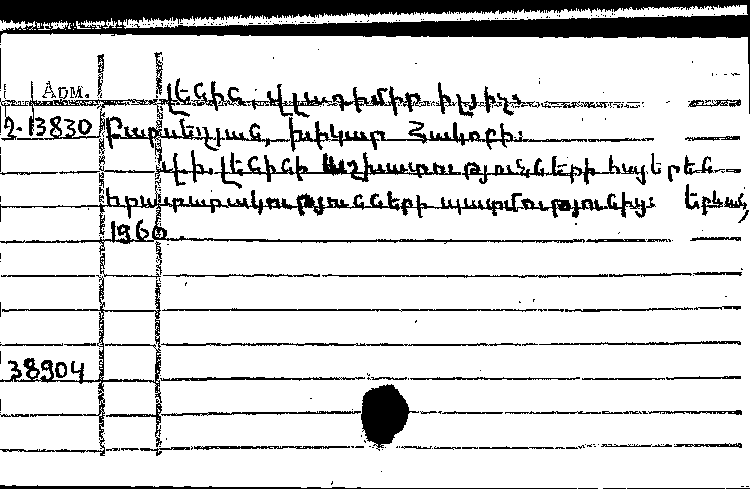 Арм. Լենին, Վլադիմիր Իլյիչ.
2-13830 Բարսեղյան, Խիկար Հակոբի.
Վ.Ի. Լենինի աշխատությունների հայերեն
հրատարակությունների պատմությունից. Երևան,
1960.
38904